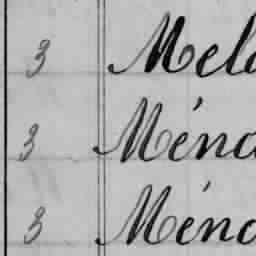 3 Mela
3 Ména
3 Ména